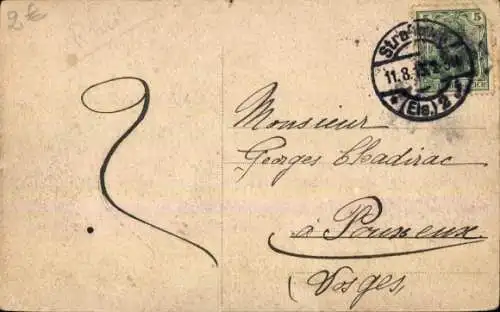 2 €
5
Straßburg
11.8.13
* (Els.) 2 *
Monsieur
Georges Chadirac
à Pouxeux
(Vosges)